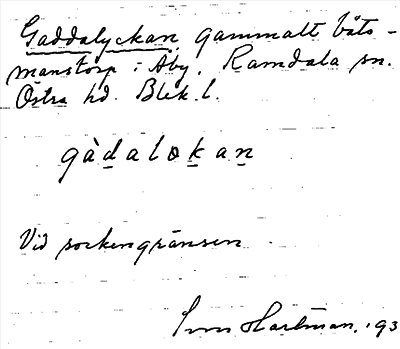 Gaddalyckan, gammalt båts-
manstorp i Åby, Ramdala sn.
Östra hd. Blek. l.
gàdalokan
Vid sockengränsen
Hartman. 193